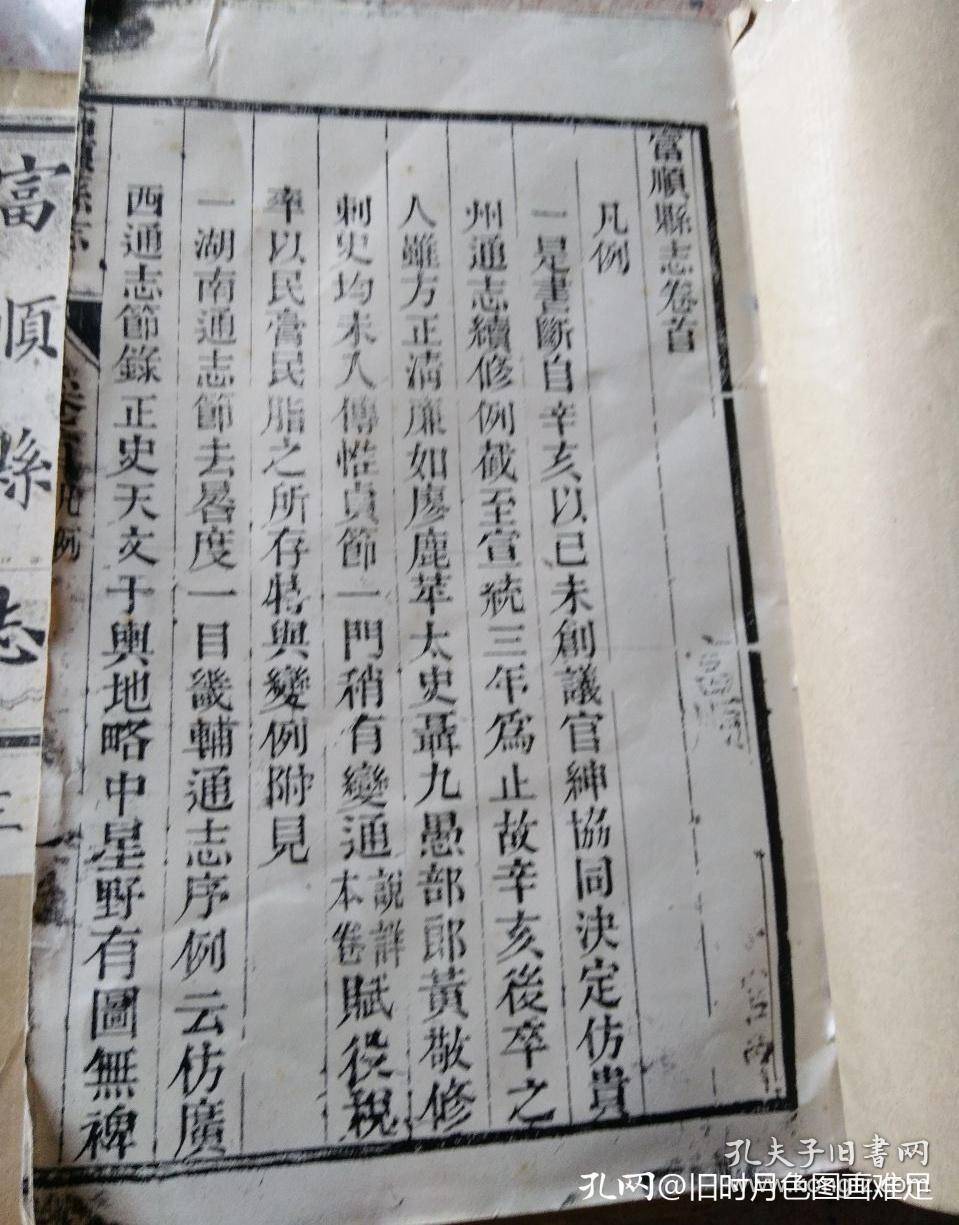 富順縣志卷首
凡例
一是書斷自辛亥以己未創議官紳協同決定仿貴
州通志續修例截至宣統三年爲止故辛亥後卒之
人雖方正清廉如廖鹿苹太史聶九愚部郎黃敬修
刺史均未入傳惟貞節一門稍有變通說詳本卷賦役稅
率以民膏民脂之所存特與變例附見
一湖南通志節去晷度一目畿輔通志序例云仿廣
西通志節錄正史天文于輿地略中星野有圖無裨
富順縣志
凡例
三
孔夫子旧书网
孔网@旧时月色图画难足